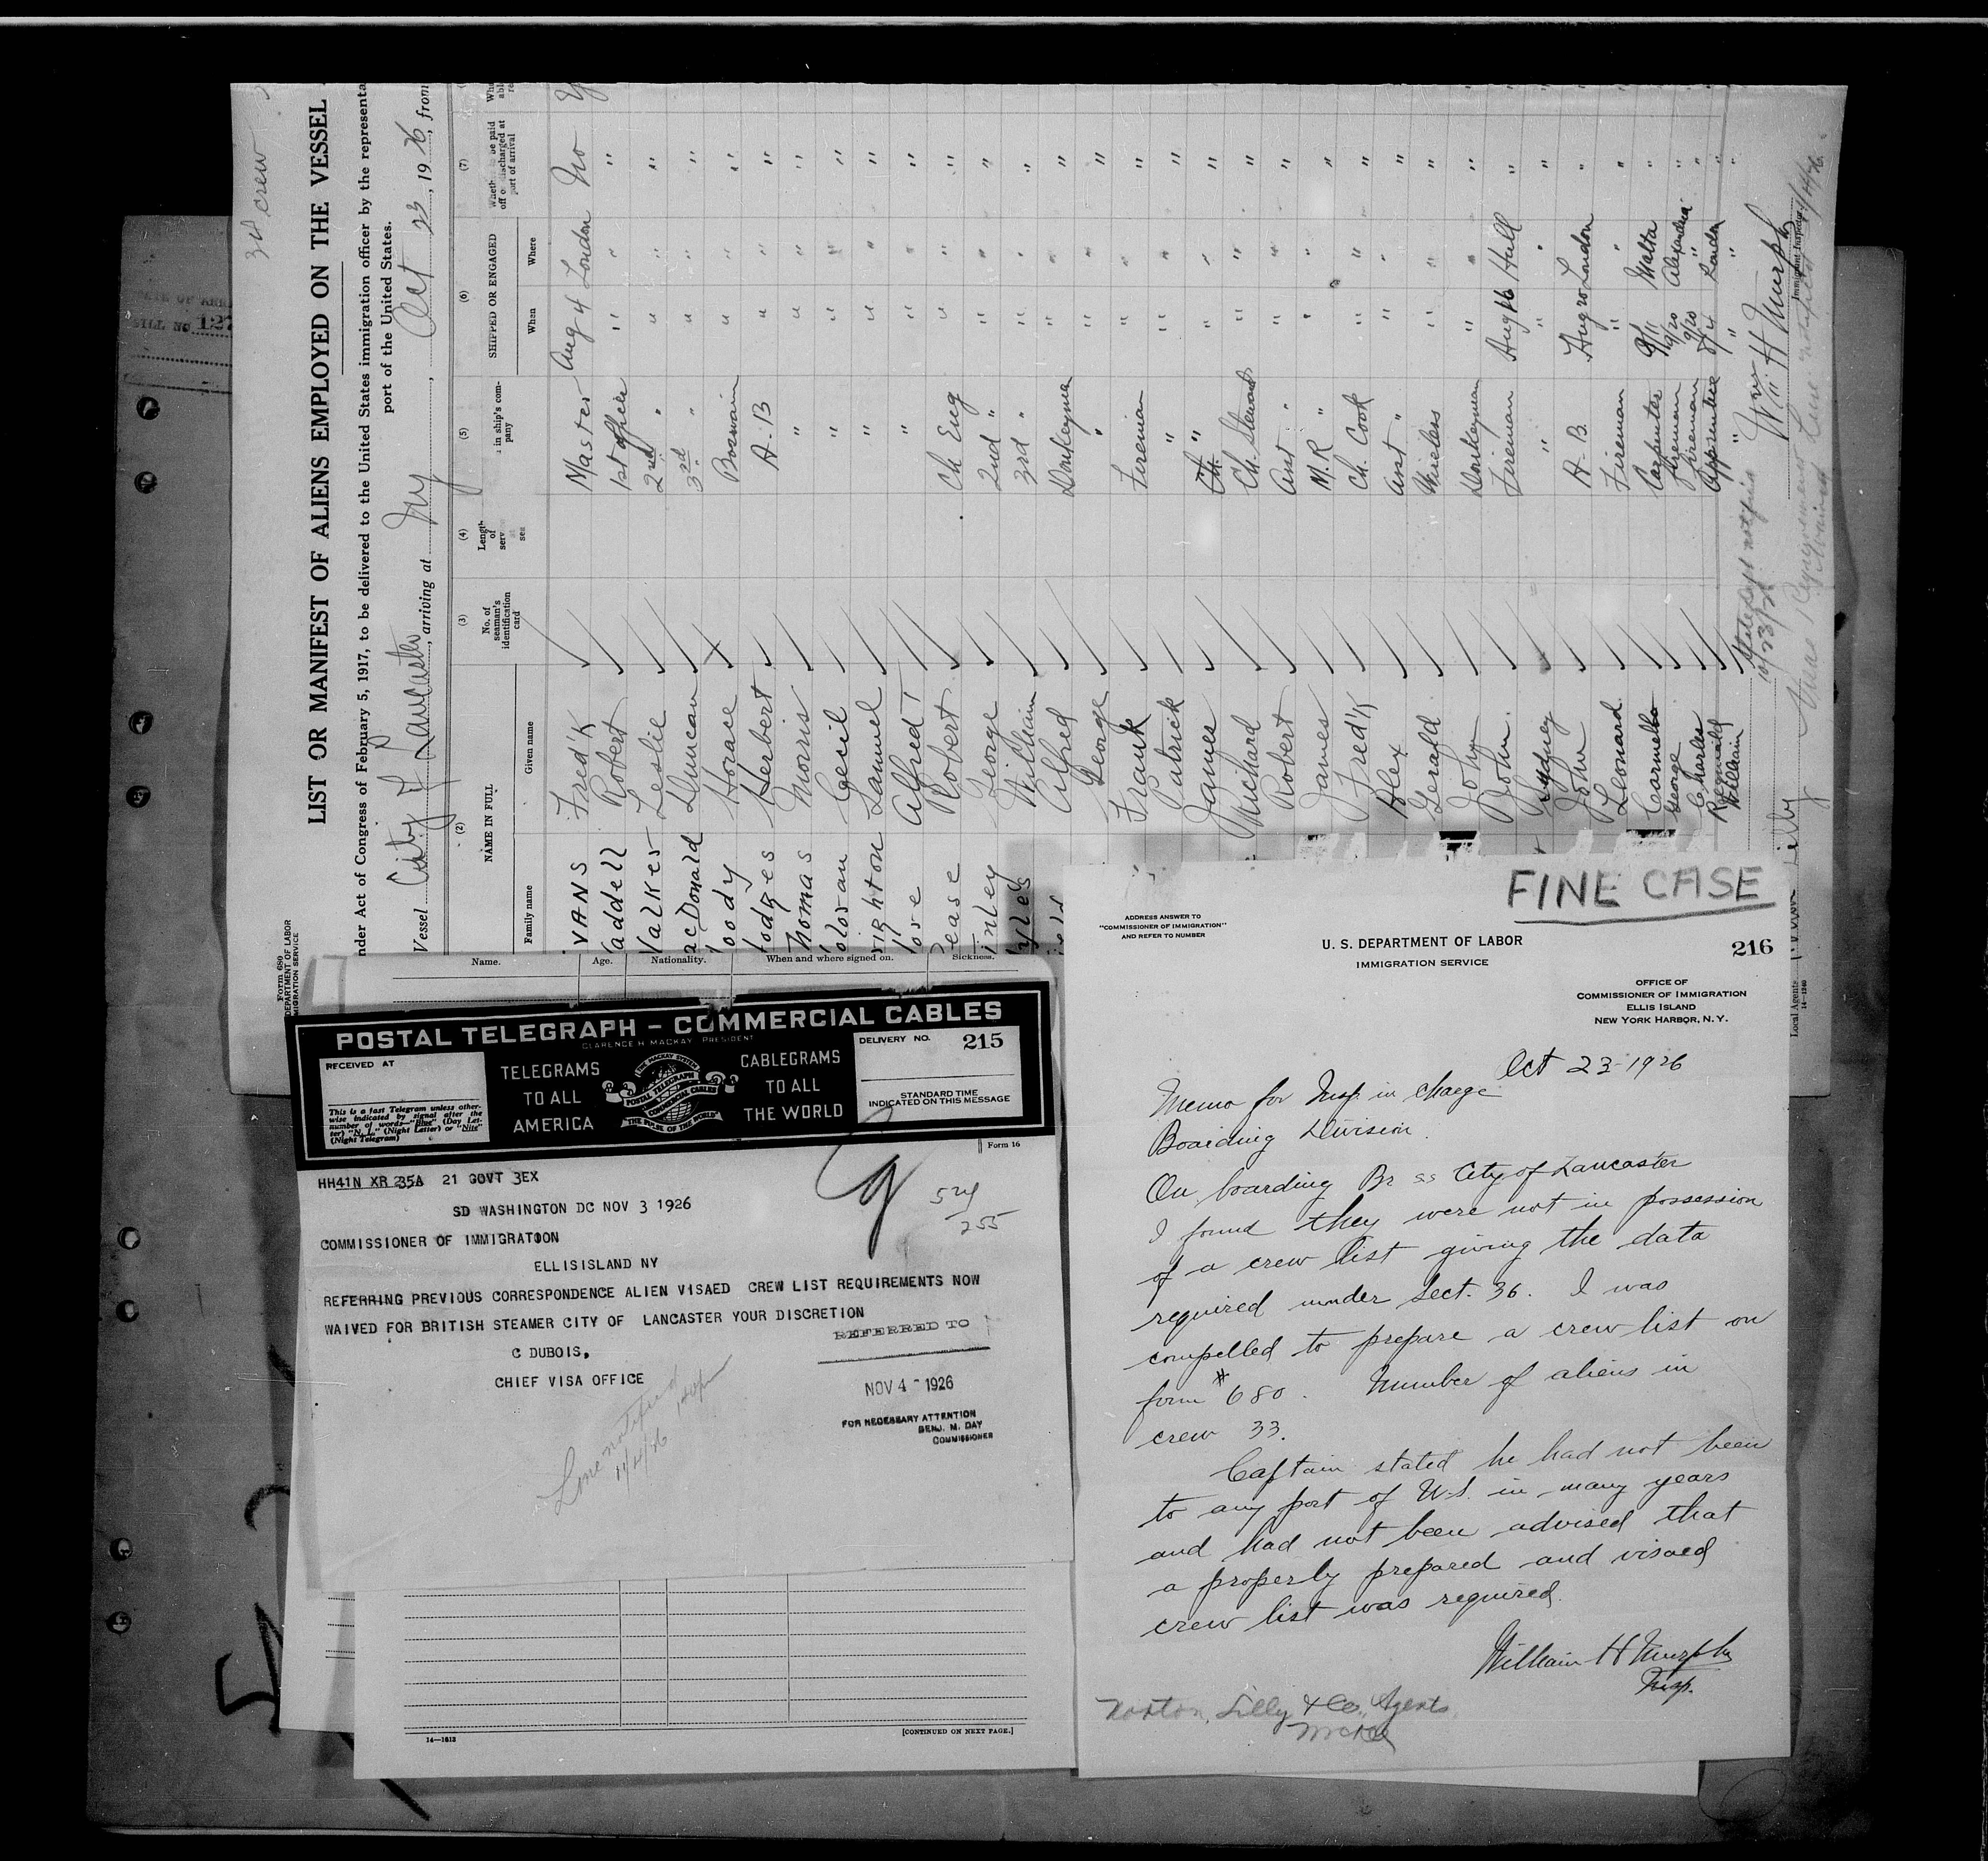 34 crew
LIST OR MANIFEST OF ALIENS EMPLOYED ON THE VESSEL
nder Act of Congress of February 5, 1917, to be delivered to the United States immigration officer by the representa
port of the United States.
Vessel City of Lancaster, arriving at NY, Oct 23, 1926, from
Form 680
DEPARTMENT OF LABOR
MIGRATION SERVICE
(2) (3) (4) (5) (6) (7)
NAME IN FULL
Family name Given name
No. of seaman's identification card
Length of serv at sea
in ship's com-pany
SHIPPED OR ENGAGED
When Where
Whether to be paid off or discharged at port of arrival
VANS Fred'K Master Aug 4 London No
addell Robert 1st officer " " "
alker Leslie 2nd " " " "
acDonald Duncan 3rd " " " "
oody Horace Boswain " " "
odges Herbert A-B " " "
homas Morris " " " "
olovan Cecil " " " "
righton Samuel " " " "
ove Alfred T " " " "
ease Robert Ch Eng " " "
inley George 2nd " " " "
yles William 3rd " " " "
Alfred Donkeyman " " "
George " " " "
Frank Fireman " " "
Patrick " " " "
James " " " "
Richard Ch. Steward " " "
Robert Asst " " " "
James M.R " " " "
Fred'K Ch. Cook " " "
Alex Asst " " " "
Gerald Wireless " " "
John Donkeyman " " "
John Fireman Aug 16 Hull "
Sydney " " " "
John A.B. Aug 20 London "
Leonard Fireman " " "
Carmello Carpenter 9/11 Malta "
George Fireman 9/20 Alexandria "
Charles Fireman 9/20 " "
Reginald Apprentice 8/4 London "
William " " " "
10/23/26
Wm H Murphy
Immigrant Inspector
Visae Requirements
Local Agents
14—1240
Name. Age. Nationality. When and where signed on. Sickness.
POSTAL TELEGRAPH - COMMERCIAL CABLES
CLARENCE H. MACKAY, PRESIDENT
RECEIVED AT
This is a fast Telegram unless other-
wise indicated by signal after the
number of words—"Blue" (Day Let-
ter) "N.L." (Night Letter) or "Nite"
(Night Telegram)
TELEGRAMS
TO ALL
AMERICA
THE MACKAY SYSTEM
POSTAL TELEGRAPH
COMMERCIAL CABLES
THE PULSE OF THE WORLD
CABLEGRAMS
TO ALL
THE WORLD
DELIVERY NO. 215
STANDARD TIME
INDICATED ON THIS MESSAGE
Form 16
HH41N XR 235A 21 GOVT 3EX
SD WASHINGTON DC NOV 3 1926
524
255
COMMISSIONER OF IMMIGRATION
ELLISISLAND NY
REFERRING PREVIOUS CORRESPONDENCE ALIEN VISAED CREW LIST REQUIREMENTS NOW
WAIVED FOR BRITISH STEAMER CITY OF LANCASTER YOUR DISCRETION
C DUBOIS,
CHIEF VISA OFFICE
REFERRED TO
NOV 4 - 1926
FOR NECESSARY ATTENTION
BENJ. M. DAY
COMMISSIONER
Line notified
11/4/26
14—1613
[CONTINUED ON NEXT PAGE.]
FINE CASE
ADDRESS ANSWER TO
"COMMISSIONER OF IMMIGRATION"
AND REFER TO NUMBER
U. S. DEPARTMENT OF LABOR
IMMIGRATION SERVICE
216
OFFICE OF
COMMISSIONER OF IMMIGRATION
ELLIS ISLAND
NEW YORK HARBOR, N. Y.
Oct 23-1926
Memo for Insp in charge
Boarding Division.
On boarding Br ss City of Lancaster
I found they were not in possession
of a crew list giving the data
required under Sect. 36. I was
compelled to prepare a crew list on
form # 680. Number of aliens in
crew 33.
Captain stated he had not been
to any port of U.S. in many years
and had not been advised that
a properly prepared and visaed
crew list was required.
William H Murphy
Insp.
Norton, Lilly & Co., Agents